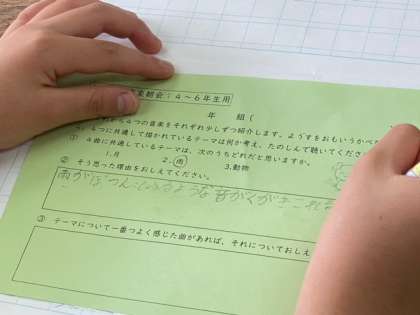 楽朝会：4～6年生用
年 組（
ら4つの音楽をそれぞれ少しずつ紹介します。ようすをおもいうかべな
4つに共通して描かれているテーマは何か考え、たのしんで聴いてくださ
① 4曲に共通しているテーマは、次のうちどれだと思いますか。
1.月 2.雨 3.動物
② そう思った理由をおしえてください。
雨がぽつん というような音がくがながれ
③ テーマについて一番つよく感じた曲があれば、それについておしえ